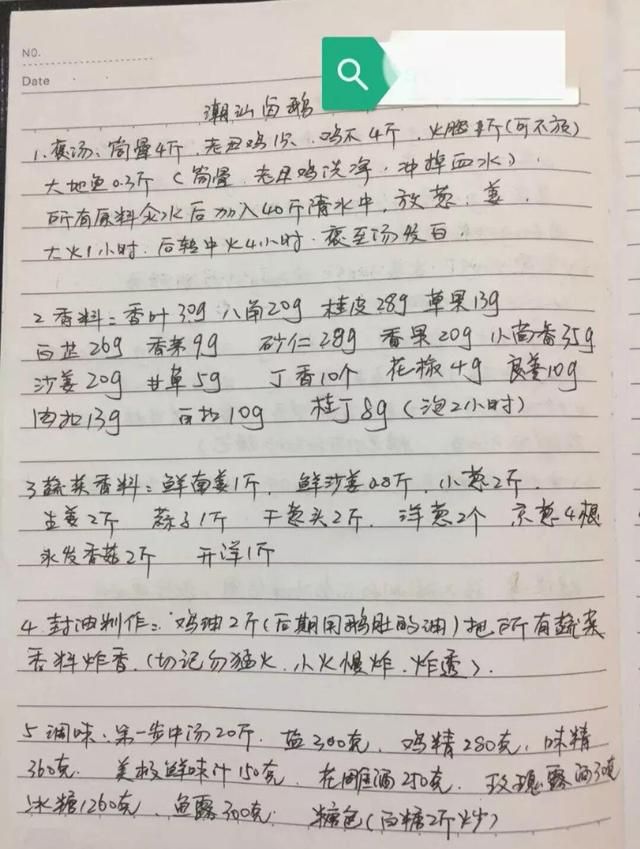 NO.
Date
潮汕卤鹅
1. 熬汤: 筒骨4斤, 老母鸡1只, 鸡爪4斤, 火腿 斤(可不放)
大地鱼0.3斤 (筒骨, 老母鸡洗净, 冲掉血水).
所有原料汆水后加入40斤清水中, 放葱, 姜,
大火1小时, 后转中火4小时, 熬至汤发白.
2 香料: 香叶30g 八角20g 桂皮28g 草果13g
白芷26g 香茅9g 砂仁28g 香果20g 小茴香35g
沙姜20g 甘草5g 丁香10个 花椒4g 良姜10g
肉扣13g 白扣10g 桂丁8g (泡2小时)
3 蔬菜香料: 鲜南姜1斤, 鲜沙姜0.8斤, 小葱2斤,
生姜2斤 蒜子1斤 干葱头2斤, 洋葱2个 京葱4根
水发香菇2斤 开洋1斤
4. 封油制作: 鸡油2斤(后期用鹅肚的油)把所有蔬菜
香料炸香. (切记勿猛火, 小火慢炸, 炸透).
5 调味. 第一步中汤20斤. 盐300克, 鸡精280克, 味精
360克. 美极鲜味汁150克, 花雕酒250克, 玫瑰露酒30克
冰糖1260克, 鱼露300克. 糖色(白糖2斤炒)